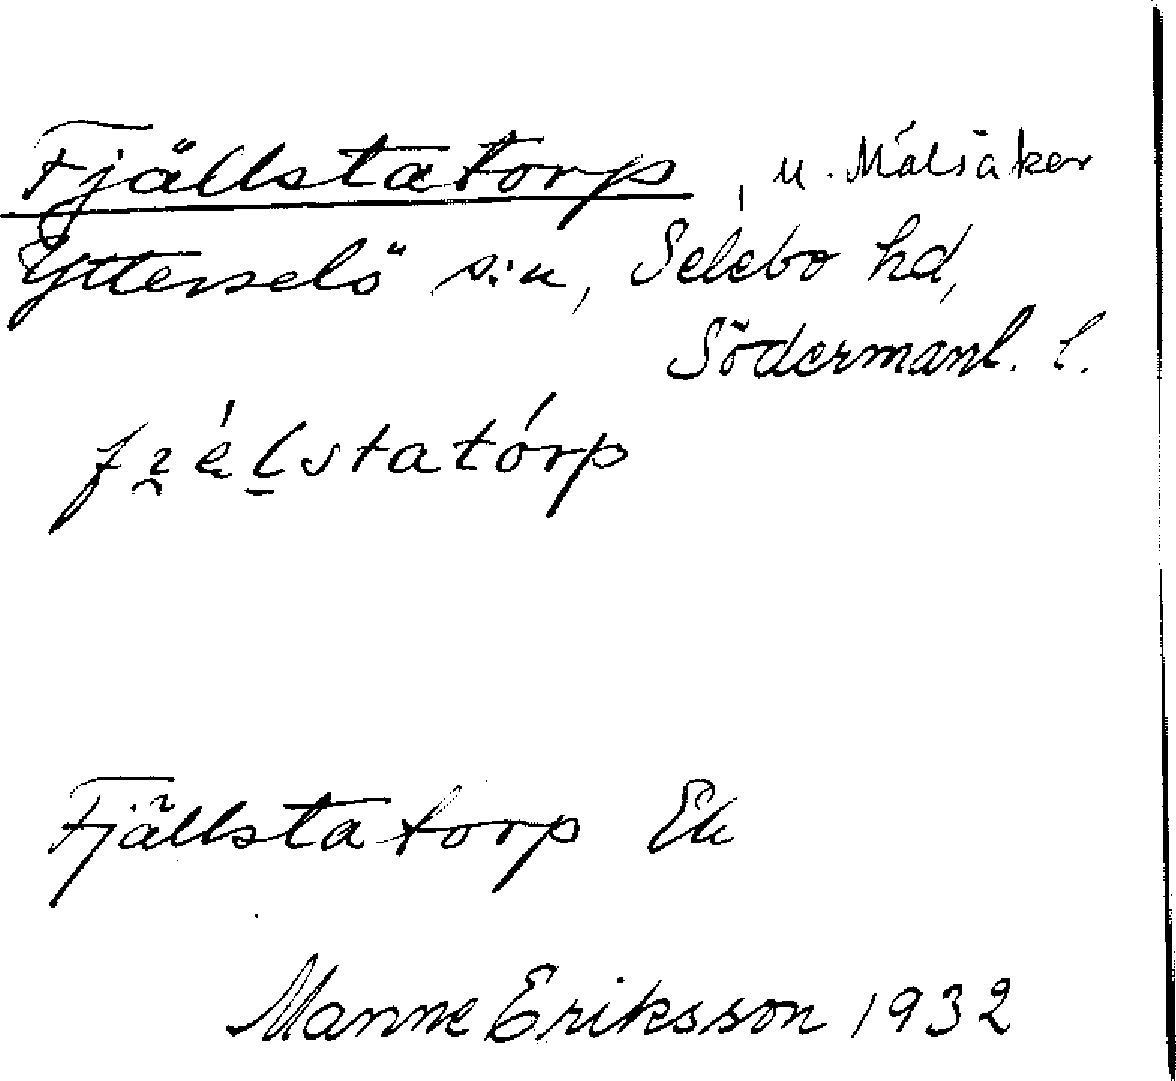 Fjällstatorp, u. Målsåker
Ytterselö s:n, Selebo hd,
Södermanl. l.
fi̯élstatórp
Fjällstatorp Ek
Manne Eriksson 1932